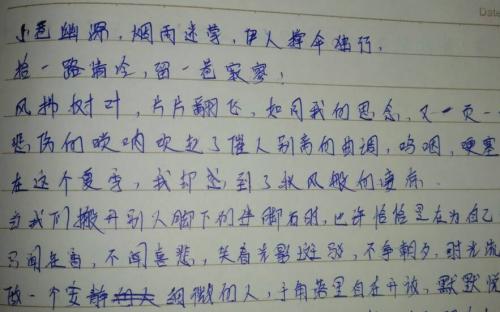 Date
小巷幽深,烟雨迷蒙,伊人撑伞独行,
拾一路清冷,留一巷寂寥;
风拂树叶,片片翻飞,如同我的思念,又一页一
悲伤的唢呐吹起了催人别离的曲调,呜咽,哽塞
在这个夏季,我却感到了秋风般的凄凉.
当我们搬开别人脚下的绊脚石时,也许恰恰是在为自己
闲在看,不闻喜悲,笑看光影斑驳,不争朝夕,时光流
做一个安静细微的人,于角落里自在开放,默默悦